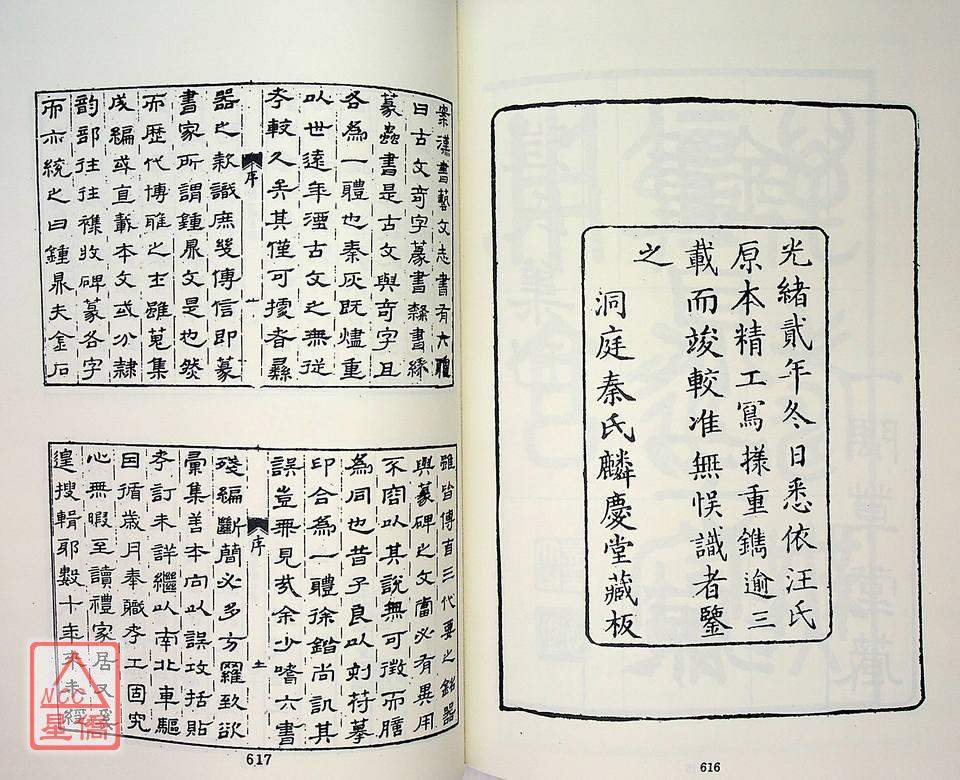 光緒貳年冬日悉依汪氏
原本精工寫様重鐫逾三
載而竣較准無悞識者鑒
之
洞庭秦氏麟慶堂藏板
616
案漢書藝文志書有六體
曰古文奇字篆書隸書繆
篆蟲書是古文與奇字且
各為一體也秦灰既燼重
以世遠年湮古文之無從
考較久矣其僅可據者彝
序
器之款識庶幾傳信即篆
書家所謂鍾鼎文是也然
而歷代博雅之士雖蒐集
成編或直載本文或分隸
韵部往往襍收碑篆各字
而亦統之曰鍾鼎夫金石
雖皆傳自三代要之銘器
與篆碑之文當必有異用
不容以其說無可徵而膽
為同也昔子良以刻符摹
印合為一體徐鍇尚訊其
誤豈無見哉余少嗜六書
序
殘編斷蕳必多方羅致欲
彙集善本向以誤攻括貼
考訂未詳繼以南北車驅
因循歲月奉職考工固究
心無暇至讀禮家居又奚
遑搜輯耶數十年來未經
617
NCC
星僑